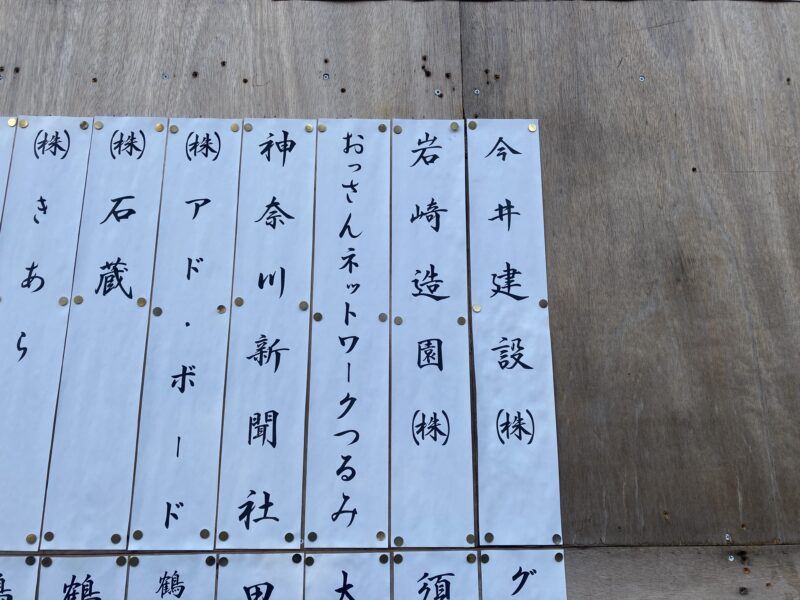 今井建設㈱
岩崎造園㈱
おっさんネットワークつるみ
神奈川新聞社
㈱アド・ボード
㈱石蔵
㈱きあら
グ
須
大
田
鶴
鶴
鶴